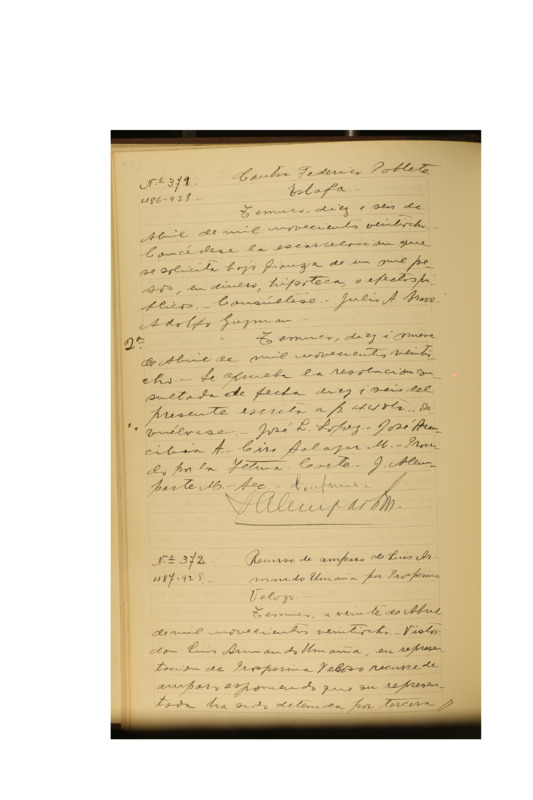 N.º 371
Contra Federico Poblete
486-928.-
Estafa.-
Temuco, diez i seis de
Abril de mil novecientos veintiocho.-
Concédese la escarcelacion que
se solicita bajo fianza de un mil pe-
sos, en dinero, hipoteca, o efectos pú-
blicos.- Consúltese.- Julio A. Bravo
Adolfo Guzman.-
2ª
Temuco, diez i nueve
de Abril de mil novecientos veinti-
cho.- Se aprueba la resolucion con-
sultada de fecha diez i seis del
presente escrita a f. De-
vuélvase.- José L. Lopez.- José Aran-
cibia A.- Ciro Salazar M.- Provei-
do por la Iltma. Corte.- J. Alem-
parte M.- Sec.- Conforme.-
JAlemparte M.
N.º 372
Recurso de amparo de Luis Ar-
487-928.-
mando Umaña por Prosperina
Velozo.-
Temuco, a veinte de Abril
de mil novecientos veintiocho.- Vistos:
don Luis Armando Umaña, en represen-
tacion de Prosperina Veloso recurre de
amparo esponiendo que su represen-
tada ha sido detenida por tercera